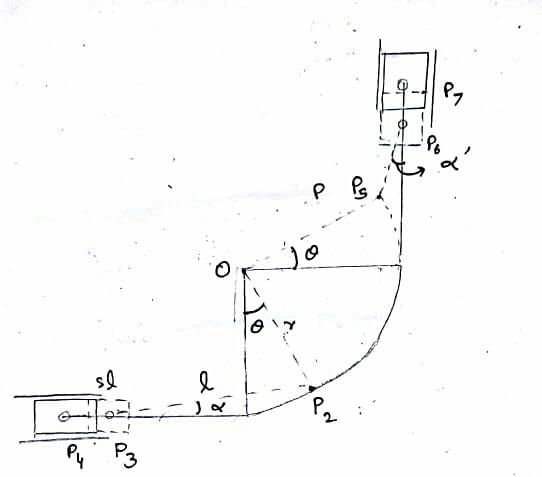 P7
P6
α'
P P5
θ
O
θ r
sl l
α
P2
P4 P3